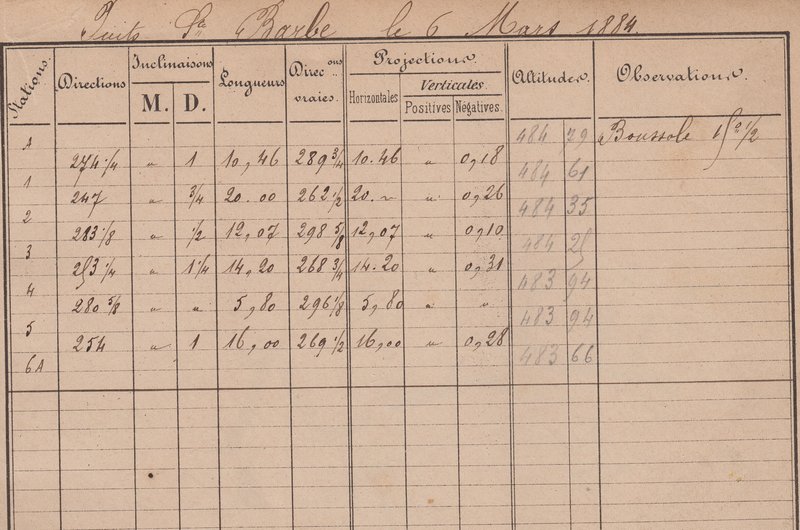 Puits Ste Barbe le 6 Mars 1884.
Stations. Directions Inclinaisons M. D. Longueurs Direc.ons vraies. Projections. Horizontales Verticales. Positives Négatives. Altitudes. Observations.
A 484 79 Boussole 15° 1/2
274 1/4 " 1 10,46 289 3/4 10.46 " 0,18
1 484 61
247 " 3/4 20.00 262 1/2 20.~ " 0,26
2 484 35
283 1/8 " 1/2 12,07 298 5/8 12,07 " 0,10
3 484 25
253 1/4 " 1 1/4 14,20 268 3/4 14.20 " 0,31
4 483 94
280 5/8 " " 5,80 296 1/8 5,80 " "
5 483 94
254 " 1 16,00 269 1/2 16,00 " 0,28
6A 483 66